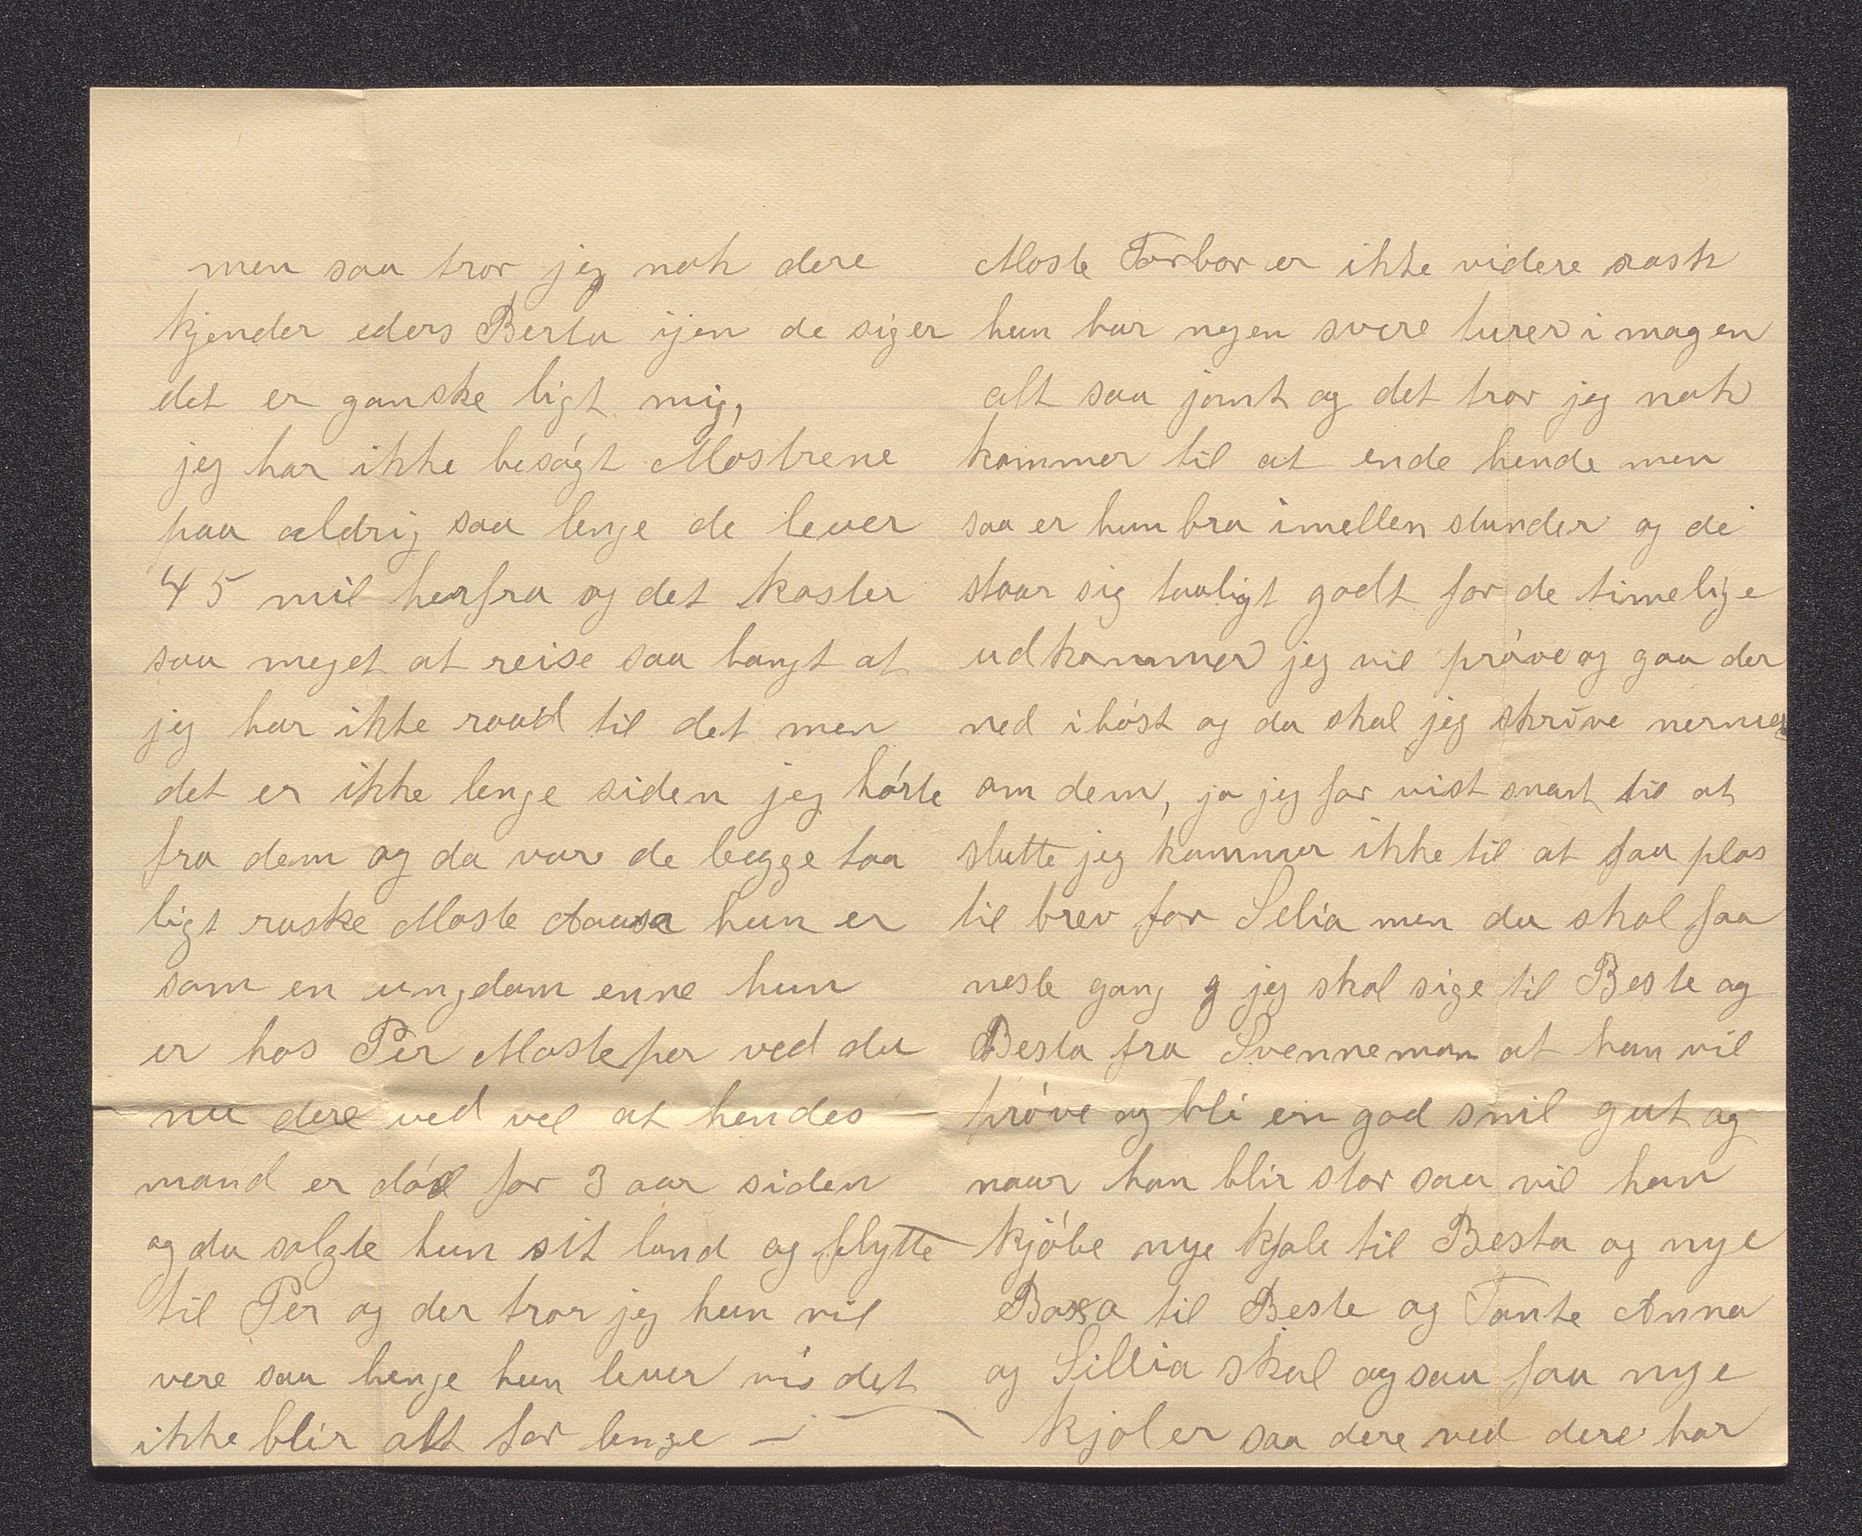 men saa tror jeg nok dere
kjender eders Berta ijen de siger
det er ganske ligt mig,
jeg har ikke besøgt Mostrene
paa aldrig saa lenge de lever
45 mil herfra og det koster
saa meget at reise saa langt at
jeg har ikke raad til det men
det er ikke lenge siden jeg hørte
fra dem og da vare de begge taa
ligt raske Moste Aausa hun er
som en ungdom enne hun
er hos Per Mosteper ved du
nu dere ved vel at hendes
mand er død for 3 aar siden
og da solgte hun sit land og flytte
til Per og der tror jeg hun vil
vere saa lenge hun lever vis det
ikke blir alt for lenge —
Moste Torbor er ikke videre rask
hun har nogen svere turer i magen
alt saa jomt og det tror jeg nok
kommer til at ende hende men
saa er hun bra imellen stunder og de
staar sig taaligt godt for de timelige
udkommer jeg vil prøve og gaa der
ned i høst og da skal jeg skrive nermer
om dem, ja jeg for vist snart til at
slutte jeg kommer ikke til at faa plas
til brev for Selia men du skal faa
neste gang jeg skal sige til Beste og
Besta fra Svenneman at han vil
prøve og bli en god snil gut og
naar han blir stor saa vil han
kjøbe nye kjole til Besta og nye
Boxa til Beste og Tante Anna
og Sillia skal ogsaa faa nye
kjoler saa dere ved dere har